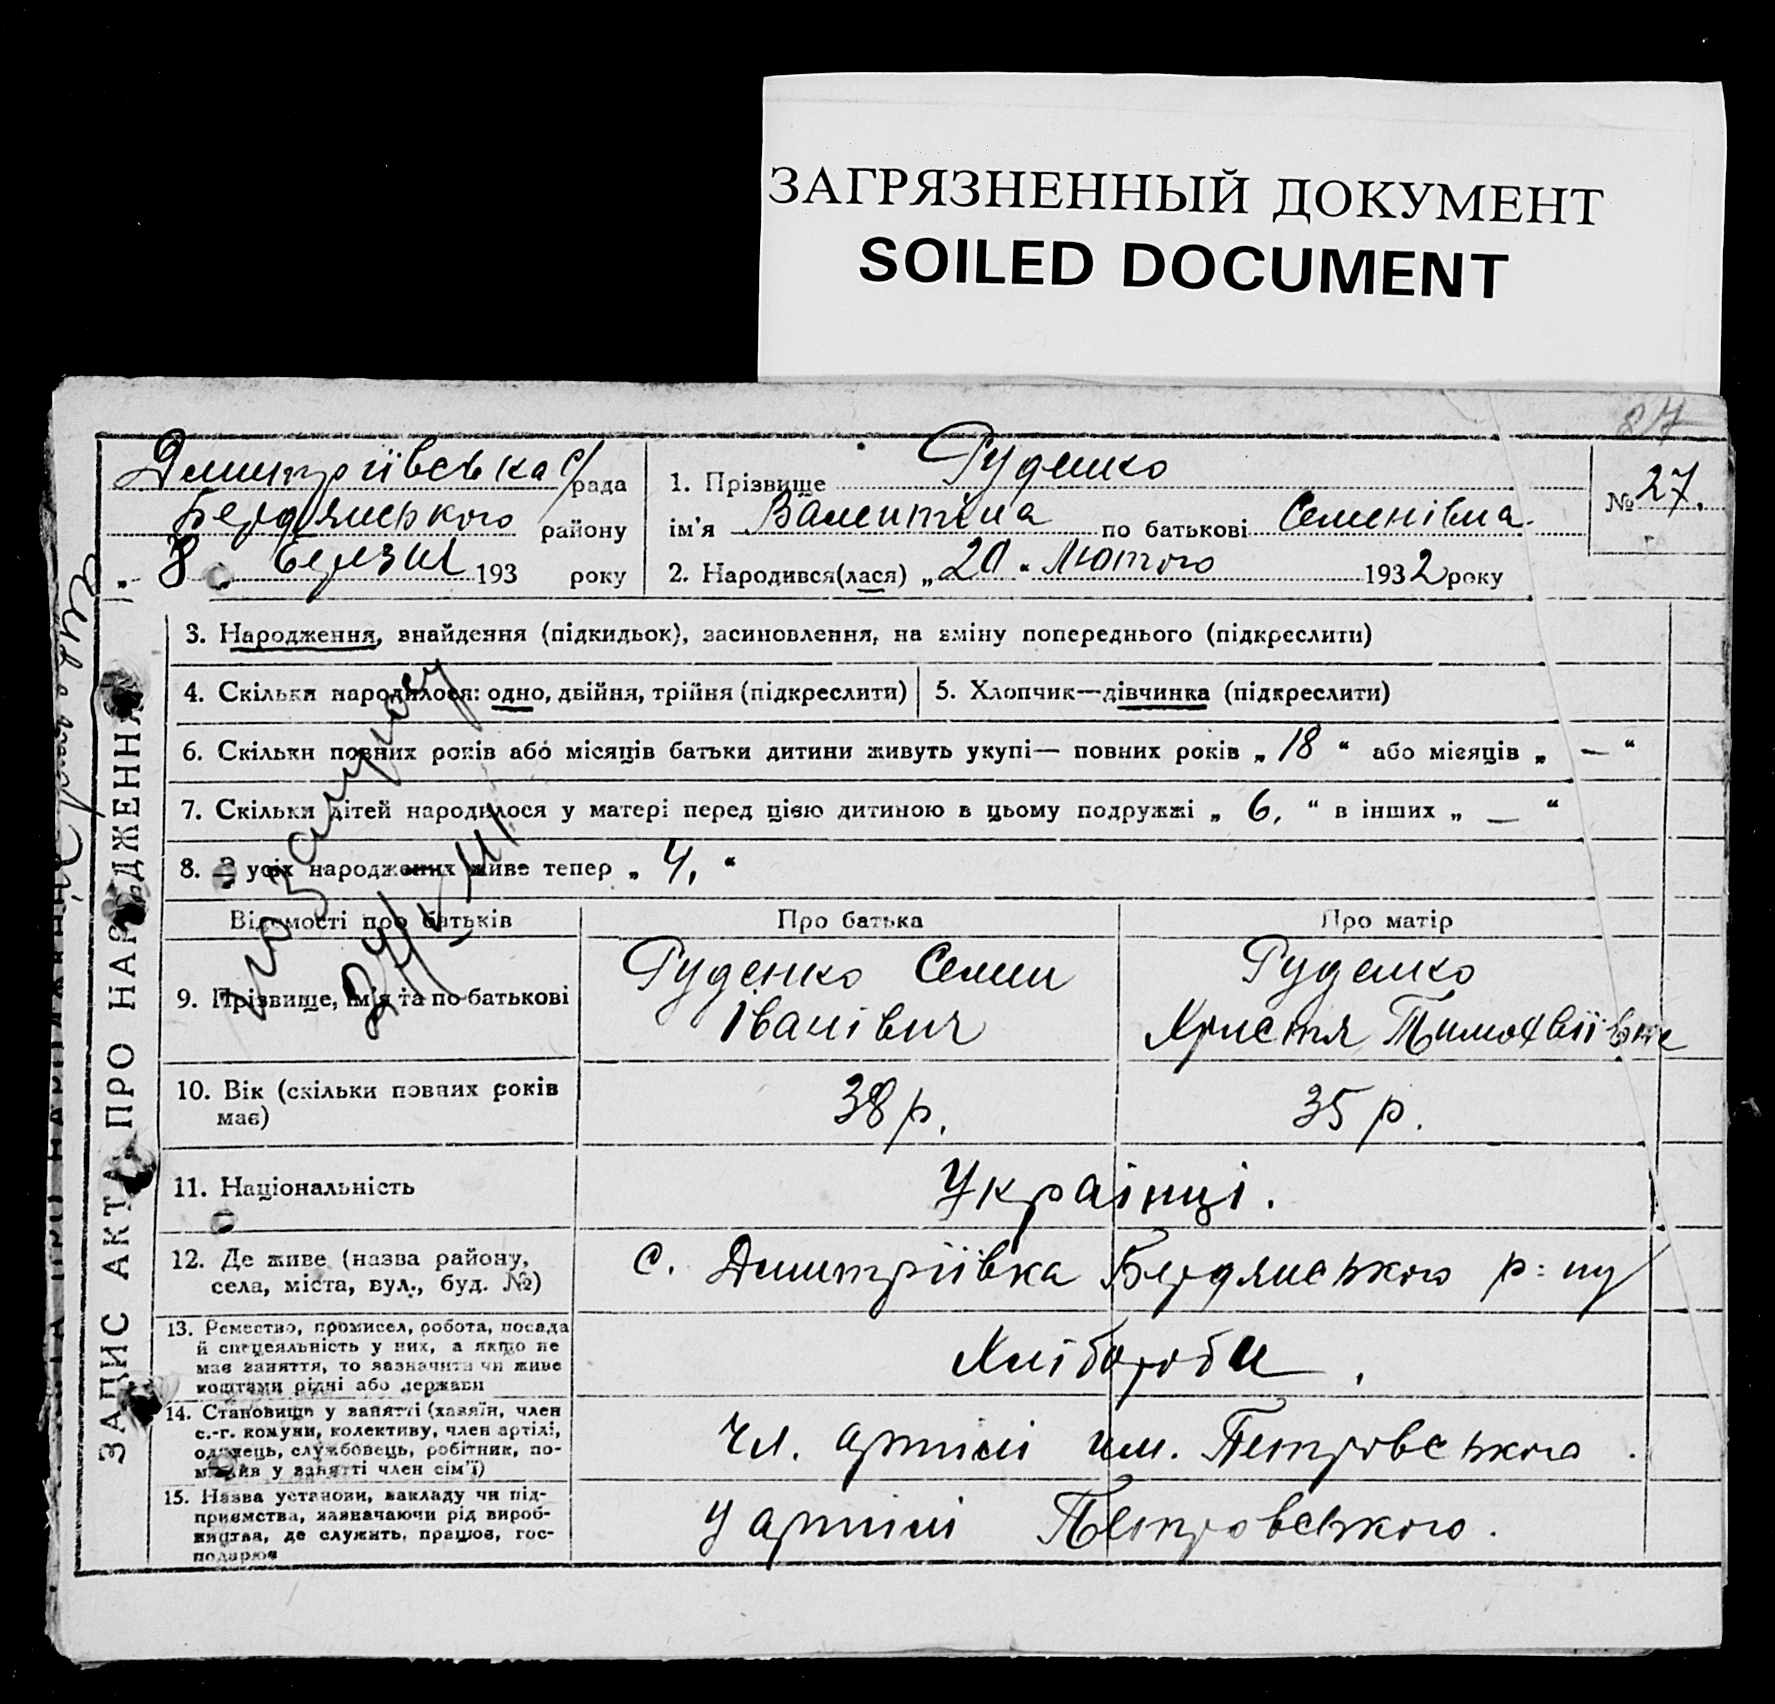 ЗАГРЯЗНЕННЫЙ ДОКУМЕНТ
SOILED DOCUMENT
87
Дмитріївська с/рада
Бердянського району
„ 8 „ березня 193 року
1. Прізвище Руденко
ім'я Валентина по батькові Семенівна
2. Народився(лася) „20“ Лютого 1932 року
№ 27.
ЗАПИС АКТА ПРО НАРОДЖЕННЯ
3. Народження, знайдення (підкидьок), засиновлення, на зміну попереднього (підкреслити)
4. Скільки народилося: одно, двійня, трійня (підкреслити)
5. Хлопчик—дівчинка (підкреслити)
6. Скільки повних років або місяців батьки дитини живуть укупі— повних років „ 18 “ або місяців „ — “
7. Скільки дітей народилося у матері перед цією дитиною в цьому подружжі „ 6, “ в інших „ — “
8. З усіх народжених живе тепер „ 4, “
Відомості про батьків
Про батька
Про матір
9. Прізвище, ім'я та по батькові
Руденко Семен
Іванівич
Руденко
Христя Тимофіївна
10. Вік (скільки повних років
має)
38 р.
35 р.
11. Національність
Українці.
12. Де живе (назва району,
села, міста, вул., буд. №)
с. Дмитріївка Бердянського р-ну
13. Ремество, промисел, робота, посада
й спецеяльність у них, а якщо не
має заняття, то зазначити чи живе
коштами рідні або держави
Хлібороби.
14. Становище у занятті (хазяїн, член
с.-г. комуни, колективу, член артілі,
одинець, службовець, робітник, по-
магає у занятті член сім'ї)
чл. артілі им. Петровського.
15. Назва установи, закладу чи під-
приємства, зазначаючи рід вироб-
ництва, де служить, працює, гос-
подарює
у артілі Петровського.